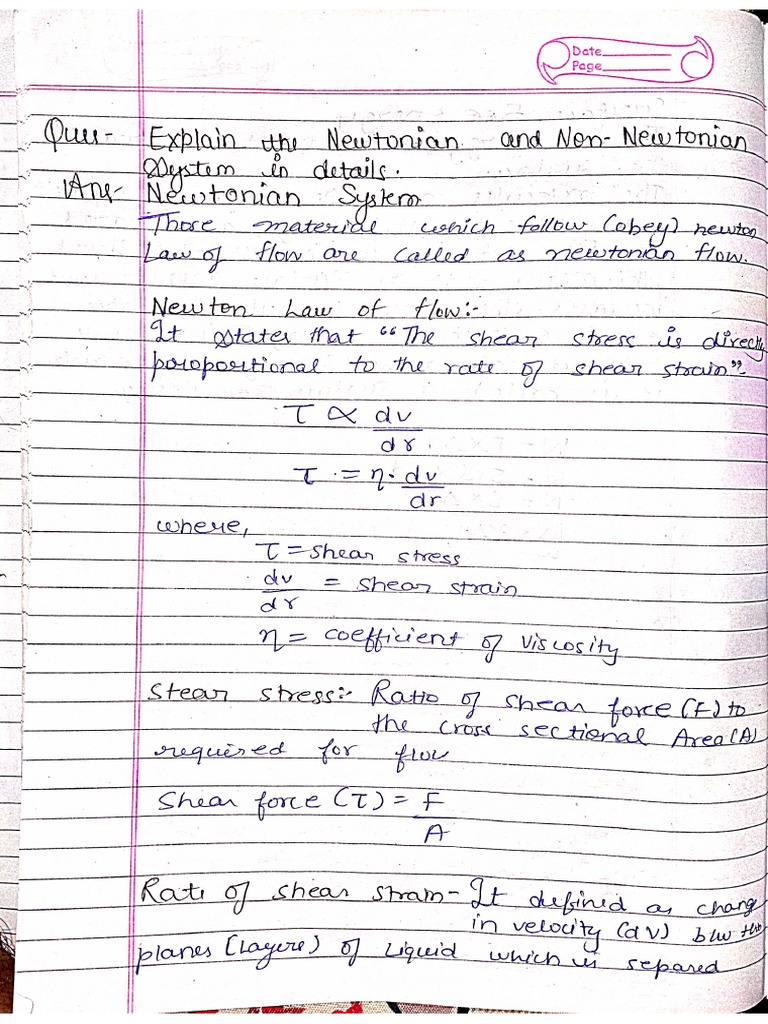 Date
Page
Ques- Explain the Newtonian and Non-Newtonian
System in details.
Ans- Newtonian System
Those material which follow (obey) newton
Law of flow are called as newtonian flow.
Newton Law of flow:-
It states that "The shear stress is directly
poropoortional to the rate of shear strain".
τ ∝ dv/dr.
τ = η. dv/dr
where,
τ = shear stress
dv/dr = shear strain
η = coefficient of viscosity
Stear stress:- Ratio of shear force (F) to
the cross sectional Area (A)
required for flow
Shear force (τ) = F/A
Rate of shear strain- It defined as chang
in velocity (dv) b/w
planes (Layere) of Liquid which is separed